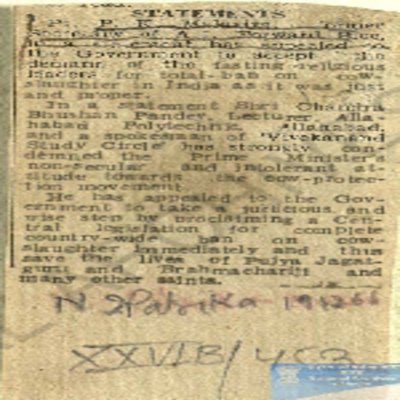 STATEMENTS
P. K.
Secretary of A Forward Bloc,
in a statement has appealed to
the Government to accept the
demand of the fasting religious
leaders for total-ban on cow-
slaughter in India as it was just
and proper.
In a statement Shri Chandra
Bhushan Pandey, Lecturer Alla-
habad Polytechnic, Allahabad,
and a spokesman of 'Vivekanand
Study Circle' has strongly con-
demned the Prime Minister's
non-secular and intolerant at-
titude towards the cow-protec-
tion movement.
He has appealed to the Gov-
ernment to take a judicious and
wise step by proclaiming a Cen-
tral legislation for complete
country-wide ban on cow-
slaughter immediately and thus
save the lives of Pujya Jagat-
guru and Brahmachariji and
many other saints.
N. Patrika 191266
XXVIB/453